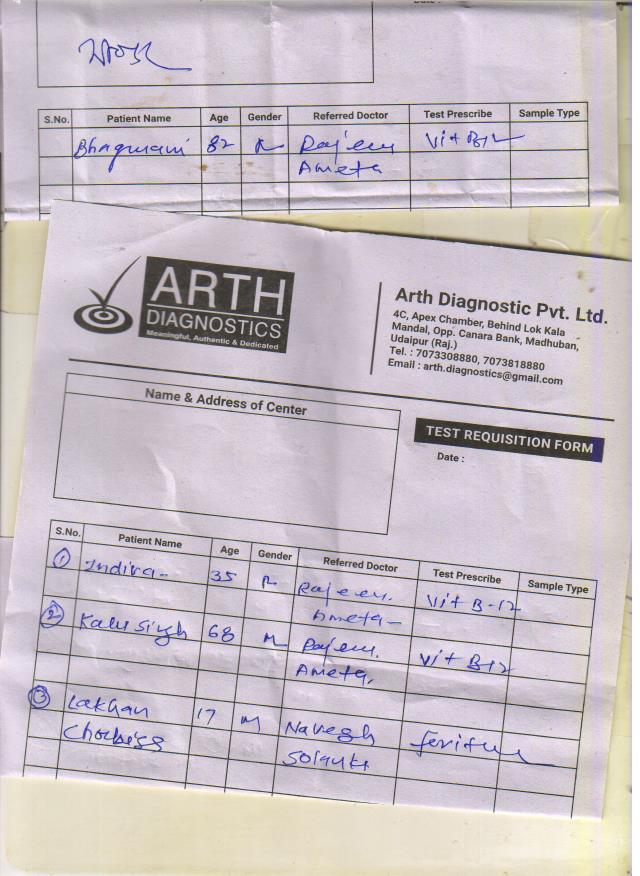 Date :
S.No. Patient Name Age Gender Referred Doctor Test Prescribe Sample Type
82 Vit B12
Ameta
ARTH
DIAGNOSTICS
Meaningful, Authentic & Dedicated
Arth Diagnostic Pvt. Ltd.
4C, Apex Chamber, Behind Lok Kala
Mandal, Opp. Canara Bank, Madhuban,
Udaipur (Raj.)
Tel. : 7073308880, 7073818880
Email : arth.diagnostics@gmail.com
Name & Address of Center
TEST REQUISITION FORM
Date :
S.No. Patient Name Age Gender Referred Doctor Test Prescribe Sample Type
1 Indira- 35 Vit B-12
Ameta-
2 Kalu Singh 68 M Vit B12
Ameta.
3 Lakhan 17 M